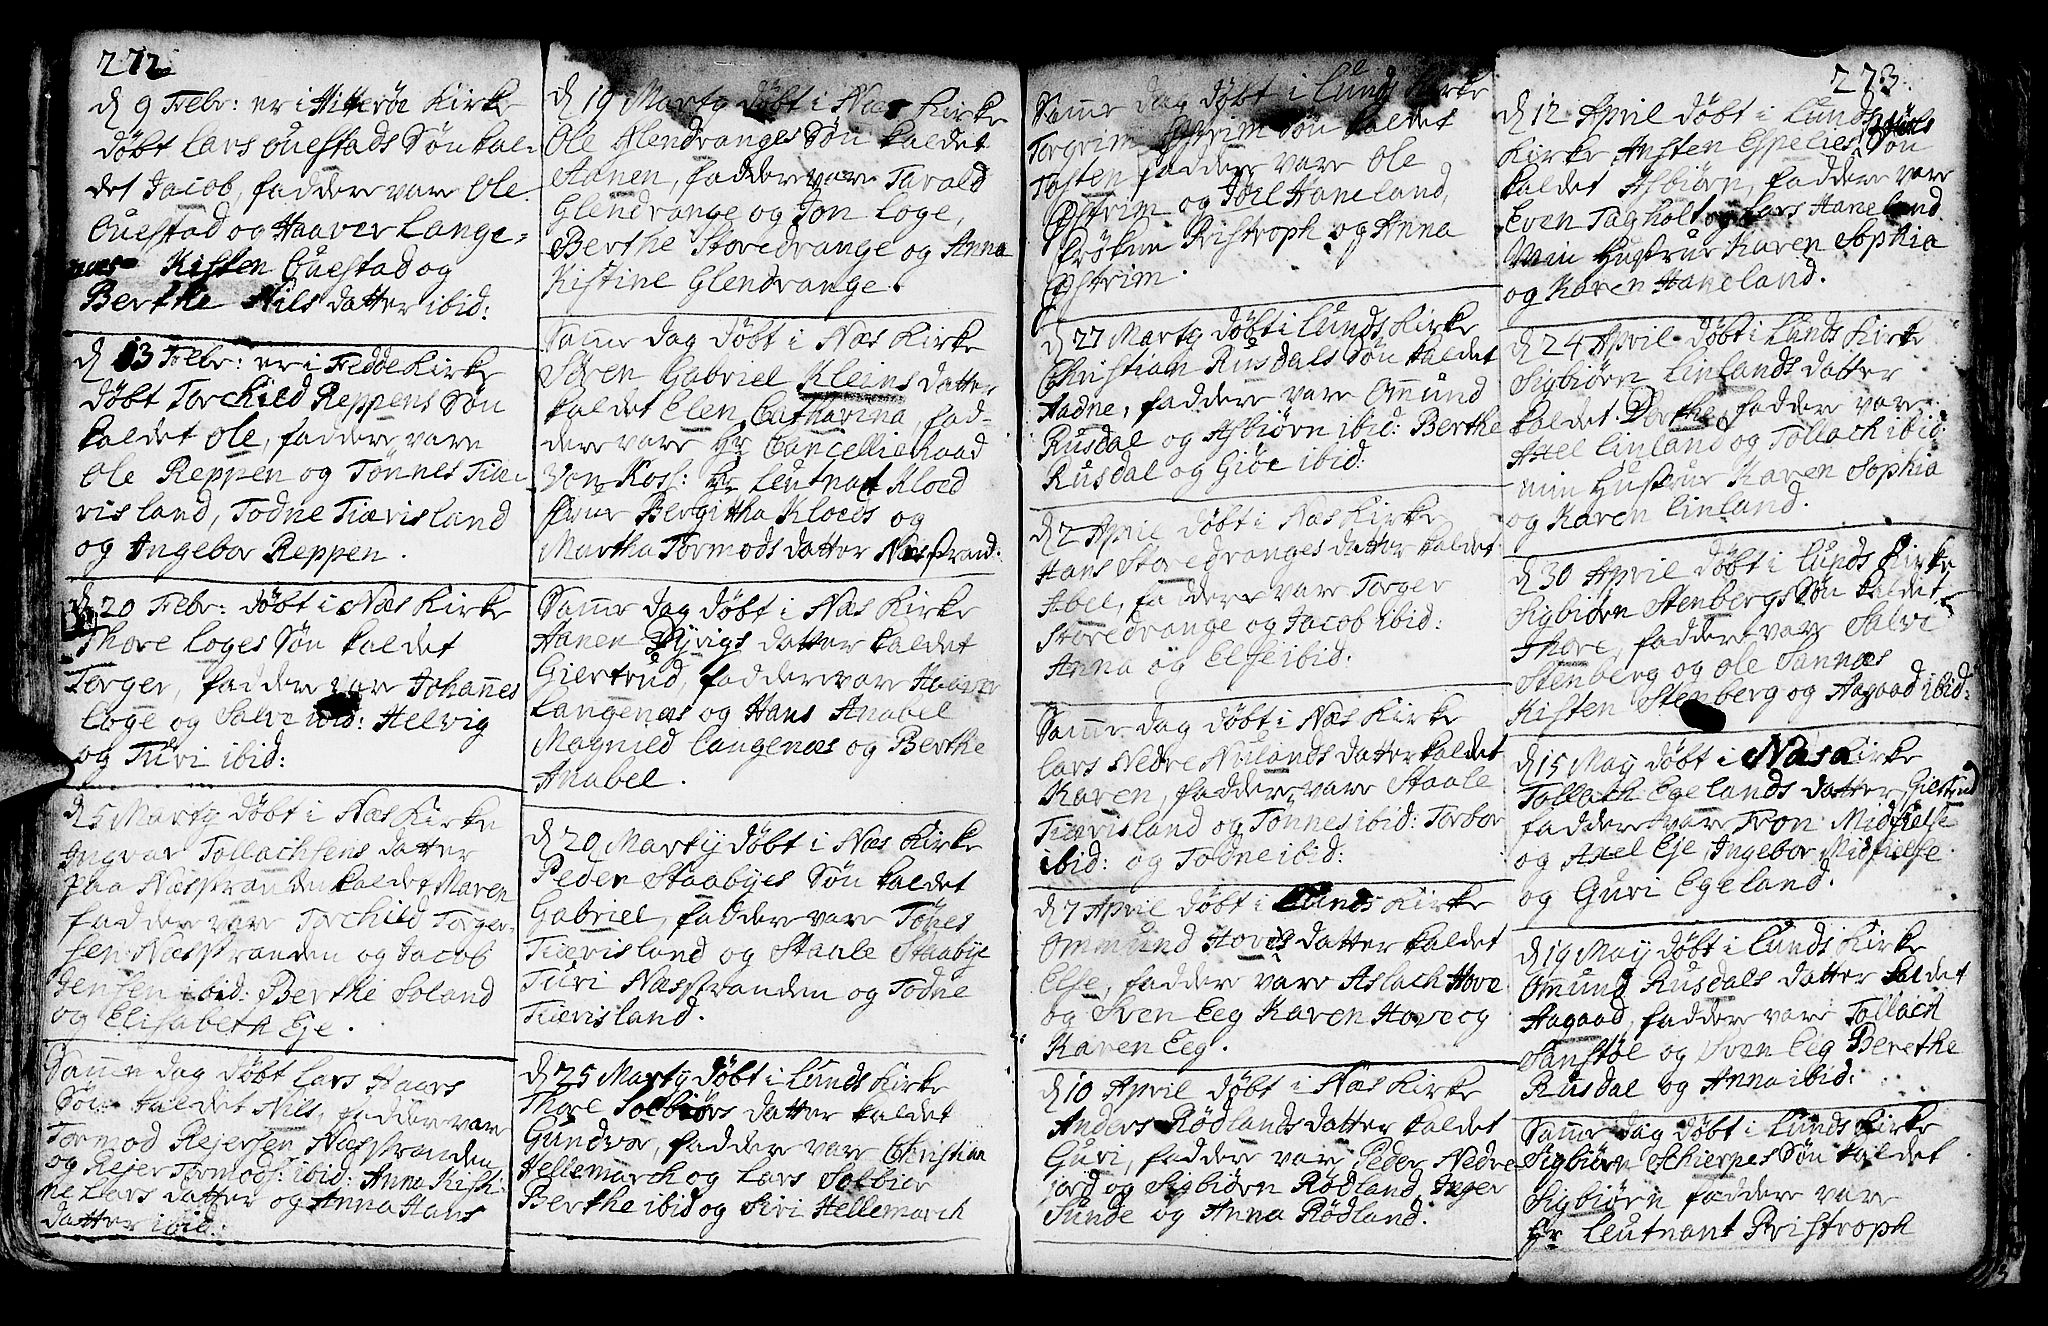 272
d 9 Febr: er i Hitterøe Kirke
døbt Lars Ouestads Søn kal-
det Jacob, faddere vare Ole
Ouestad og Haaver Lange-
næs Kisten Ouestad og
Berthe Nils datter ibid:
d 13 Febr: er i Fedde Kirke
døbt Torchild Reppens Søn
kaldet Ole, faddere vare
Ole Reppen og Tønnes Tiæ-
risland, Todne Tiærisland
og Ingebor Reppen.
d 20 Febr: døbt i Næs Kirke
Thore Loges Søn kaldet
Torger, faddere vare Johannes
Loge og Salve ibid: Helvig
og Turi ibid:
d 5 Marty døbt i Næs Kirke
Ingvar Tollachsens datter
paa Næsstranden kaldet Maren
faddere vare Torchild Torger-
sen Næsstranden og Jacob
Jensen ibid: Berthe Soland
og Elisabeth Eje.
Samme dag døbt Lars Haars
Søn kaldet Nils, faddere vare
Tormod Rejersen Næsstranden
og Rejer Tormods: ibid: Anne Kisti-
ne Lars datter og Anna Hans
datter ibid:
d 19 Marty døbt i Næs Kirke
Ole Glendranges Søn kaldet
Aanen, faddere vare Tarald
Glendrange og Jon Loge,
Berthe Storedrange og Anna
Kistine Glendrange.
Samme dag døbt i Næs Kirke
Søren Gabriel Kleins datter
kaldet Elen Catharina, fad-
dere vare Hr Cancellie Raad
Von Kosf: Hr Leutnant Kloed
Frue Bergitha Kloeds og
Martha Tormods datter Næsstrand:
Samme dag døbt i Næs Kirke
Aanen Dyvigs datter kaldet
Giertrud, faddere vare Haaver
Langenæs og Hans Anabel
Magnild Langenæs og Berthe
Anabel.
d 20 Martij døbt i Næs Kirke
Peder Staabyes Søn kaldet
Gabriel, faddere vare Tønes
Tiærisland og Staale Staabye
Turi Næsstranden og Todne
Tiærisland.
d 25 Marty døbt i Lunds Kirke
Thore Solbiørs datter kaldet
Gundvor, faddere vare Christian
Hellemarch og Lars Solbiør
Berthe ibid og Siri Hellemarch
Samme dag døbt i Lunds Kirke
Torgrim Østrim Søn kaldet
Tosten, faddere vare Ole
Østrim og Joel Haneland,
Frøken Pristroph og Anna
Østrim.
d 27 Marty døbt i Lunds Kirke
Christian Rusdals Søn kaldet
Aadne, faddere vare Omund
Rusdal og Asbiørn ibid: Berthe
Rusdal og Giøe ibid:
d 2 April døbt i Næs Kirke
Hans Storedranges datter kaldet
Abel, faddere vare Torger
Storedrange og Jacob ibid:
Anna og Else ibid:
Samme dag døbt i Næs Kirke
Lars Nedre Nulands datter kaldet
Karen, faddere vare Staale
Tiærisland og Tønnes ibid: Torbor
ibid: og Todne ibid:
d 7 April døbt i Lunds Kirke
Ommund Hoves datter kaldet
Else, faddere vare Aslach Hove
og Sven Eeg Karen Hove og
Karen Eeg.
d 10 April døbt i Næs Kirke
Anders Rødlands datter kaldet
Guri, faddere vare Peder Nedre
jord og Sigbiørn Rødland, Inger
Sunde og Anna Rødland.
273.
d 12 April døbt i Lunds
Kirke Ansten Espelies Søn
kaldet Asbiørn, faddere vare
Even Tagholt og Lars Haneland
Min Hustrue Karen Sophia
og Karen Haneland.
d 24 April døbt i Lunds Kirke
Sigbiørn Linlands datter
kaldet Dorthe, faddere vare
Axel Linland og Tollach ibid:
min Hustrue Karen Sophia
og Karen Linland.
d 30 April døbt i Lunds Kirke
Sigbiørn Stenbergs Søn kaldet
Thore, faddere var Salve
Stenberg og Ole Sannæs
Kisten Stenberg og Aagaad ibid:
d 15 May døbt i Næsa Kirke
Tollach Egelands datter Giertrud
faddere vare Tron Midfielse
og Axel Eje, Ingebor Midfielse
og Guri Egeland.
d 19 Maij døbt i Lunds Kirke
Omund Rusdals datter kaldet
Aagaad, faddere vare Tollach
Sanstøl og Sven Eeg Berethe
Rusdal og Anna ibid:
Samme dag døbt i Lunds Kirke
Sigbiørn Schierpes Søn kaldet
Sigbiørn faddere vare
Hr Leutnant Pristroph